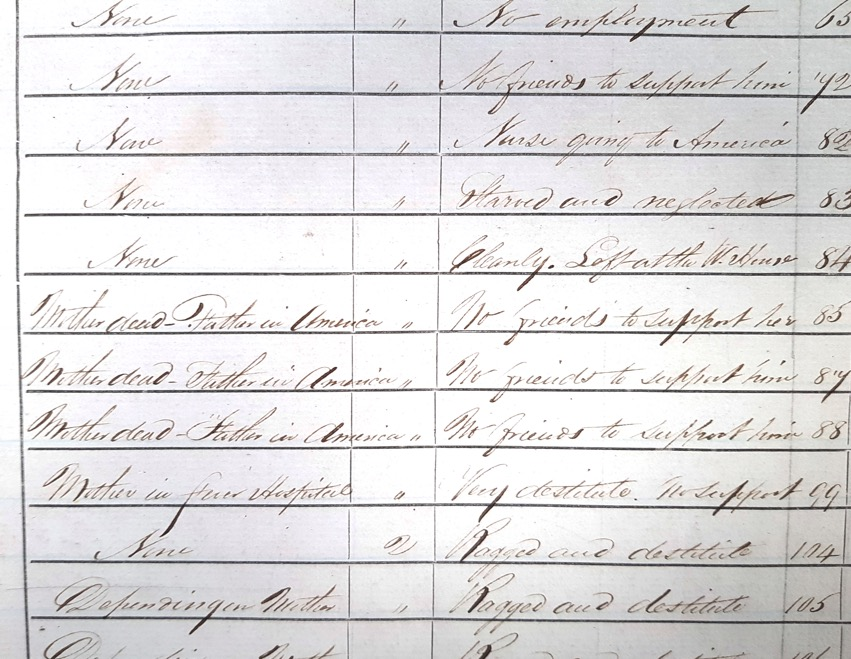 None " No employment 65
None " No friends to support him 72
None " Nurse going to America 82
None " Starved and neglected 83
None " Cleanly. Left at the W. House 84
Mother dead - Father in America " No friends to support her 85
Mother dead - Father in America " No friends to support him 87
Mother dead - Father in America " No friends to support him 88
Mother in fever Hospital " Very destitute. No support 99
None 2 Ragged and destitute 104
Depending on Mother " Ragged and destitute 105